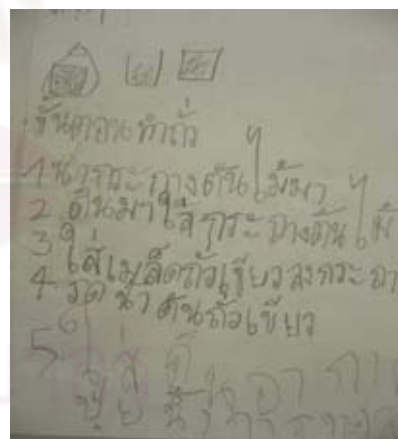 ขั้นตอนทำถั่ว
1 นำกระถางต้นไม้มา
2 ดินมาใส่กระถางต้นไม้
3 ใส่เมล็ดถั่วเขียวลงกระถา
4 รดน้ำต้นถั่วเขียว
5 ใส่
ปุ๋ย